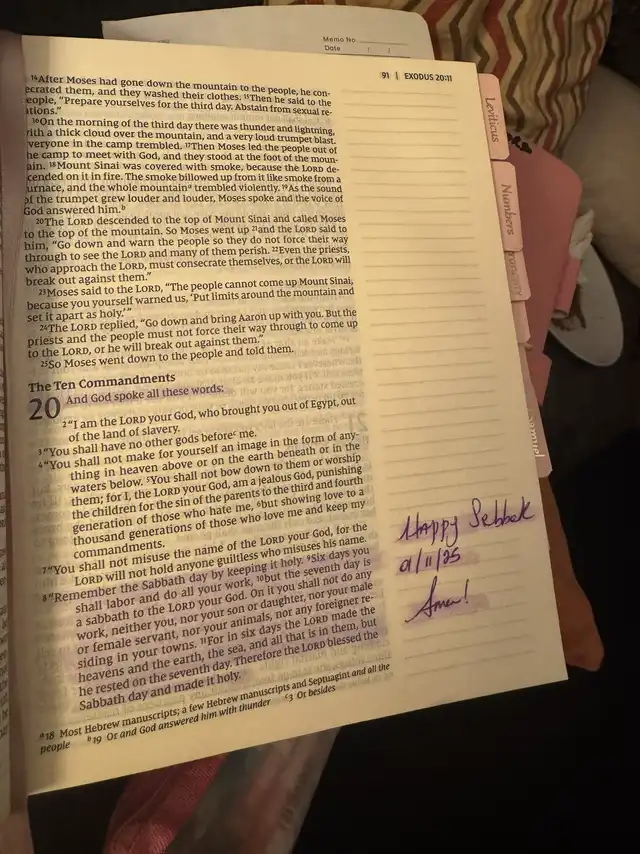 Memo No.
Date / /
91 | EXODUS 20:11
¹⁴After Moses had gone down the mountain to the people, he con-
ecrated them, and they washed their clothes. ¹⁵Then he said to the
eople, “Prepare yourselves for the third day. Abstain from sexual re-
ations.”
¹⁶On the morning of the third day there was thunder and lightning,
ith a thick cloud over the mountain, and a very loud trumpet blast.
veryone in the camp trembled. ¹⁷Then Moses led the people out of
he camp to meet with God, and they stood at the foot of the moun-
ain. ¹⁸Mount Sinai was covered with smoke, because the LORD de-
cended on it in fire. The smoke billowed up from it like smoke from a
urnace, and the whole mountainᵃ trembled violently. ¹⁹As the sound
of the trumpet grew louder and louder, Moses spoke and the voice of
God answered him.ᵇ
²⁰The LORD descended to the top of Mount Sinai and called Moses
to the top of the mountain. So Moses went up ²¹and the LORD said to
him, “Go down and warn the people so they do not force their way
through to see the LORD and many of them perish. ²²Even the priests,
who approach the LORD, must consecrate themselves, or the LORD will
break out against them.”
²³Moses said to the LORD, “The people cannot come up Mount Sinai,
because you yourself warned us, ‘Put limits around the mountain and
set it apart as holy.’”
²⁴The LORD replied, “Go down and bring Aaron up with you. But the
priests and the people must not force their way through to come up
to the LORD, or he will break out against them.”
²⁵So Moses went down to the people and told them.
The Ten Commandments
20 And God spoke all these words:
²“I am the LORD your God, who brought you out of Egypt, out
of the land of slavery.
³“You shall have no other gods beforeᶜ me.
⁴“You shall not make for yourself an image in the form of any-
thing in heaven above or on the earth beneath or in the
waters below. ⁵You shall not bow down to them or worship
them; for I, the LORD your God, am a jealous God, punishing
the children for the sin of the parents to the third and fourth
generation of those who hate me, ⁶but showing love to a
thousand generations of those who love me and keep my
commandments.
⁷“You shall not misuse the name of the LORD your God, for the
LORD will not hold anyone guiltless who misuses his name.
⁸“Remember the Sabbath day by keeping it holy. ⁹Six days you
shall labor and do all your work, ¹⁰but the seventh day is
a sabbath to the LORD your God. On it you shall not do any
work, neither you, nor your son or daughter, nor your male
or female servant, nor your animals, nor any foreigner re-
siding in your towns. ¹¹For in six days the LORD made the
heavens and the earth, the sea, and all that is in them, but
he rested on the seventh day. Therefore the LORD blessed the
Sabbath day and made it holy.
ᵃ18 Most Hebrew manuscripts; a few Hebrew manuscripts and Septuagint and all the
people ᵇ19 Or and God answered him with thunder ᶜ3 Or besides
Happy Sebbak
01/11/25
Amen!
Leviticus
Numbers